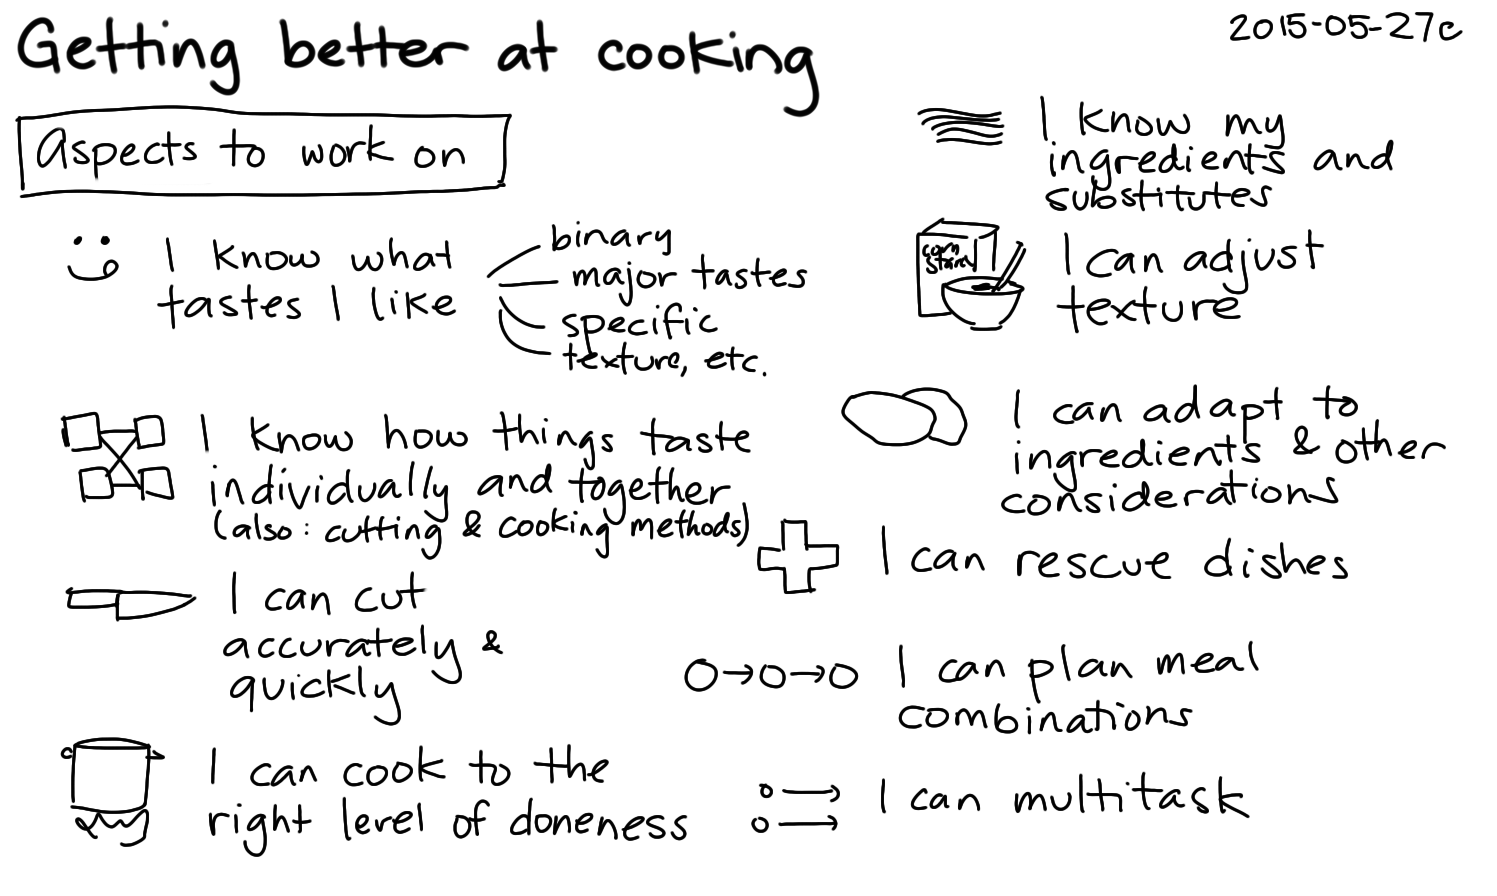 Getting better at cooking
2015-05-27c
Aspects to work on
I know what
tastes I like
binary
major tastes
specific
texture, etc.
I know how things taste
individually and together
(also: cutting & cooking methods)
I can cut
accurately &
quickly
I can cook to the
right level of doneness
I know my
ingredients and
substitutes
corn
starch
I can adjust
texture
I can adapt to
ingredients & other
considerations
I can rescue dishes
I can plan meal
combinations
I can multitask